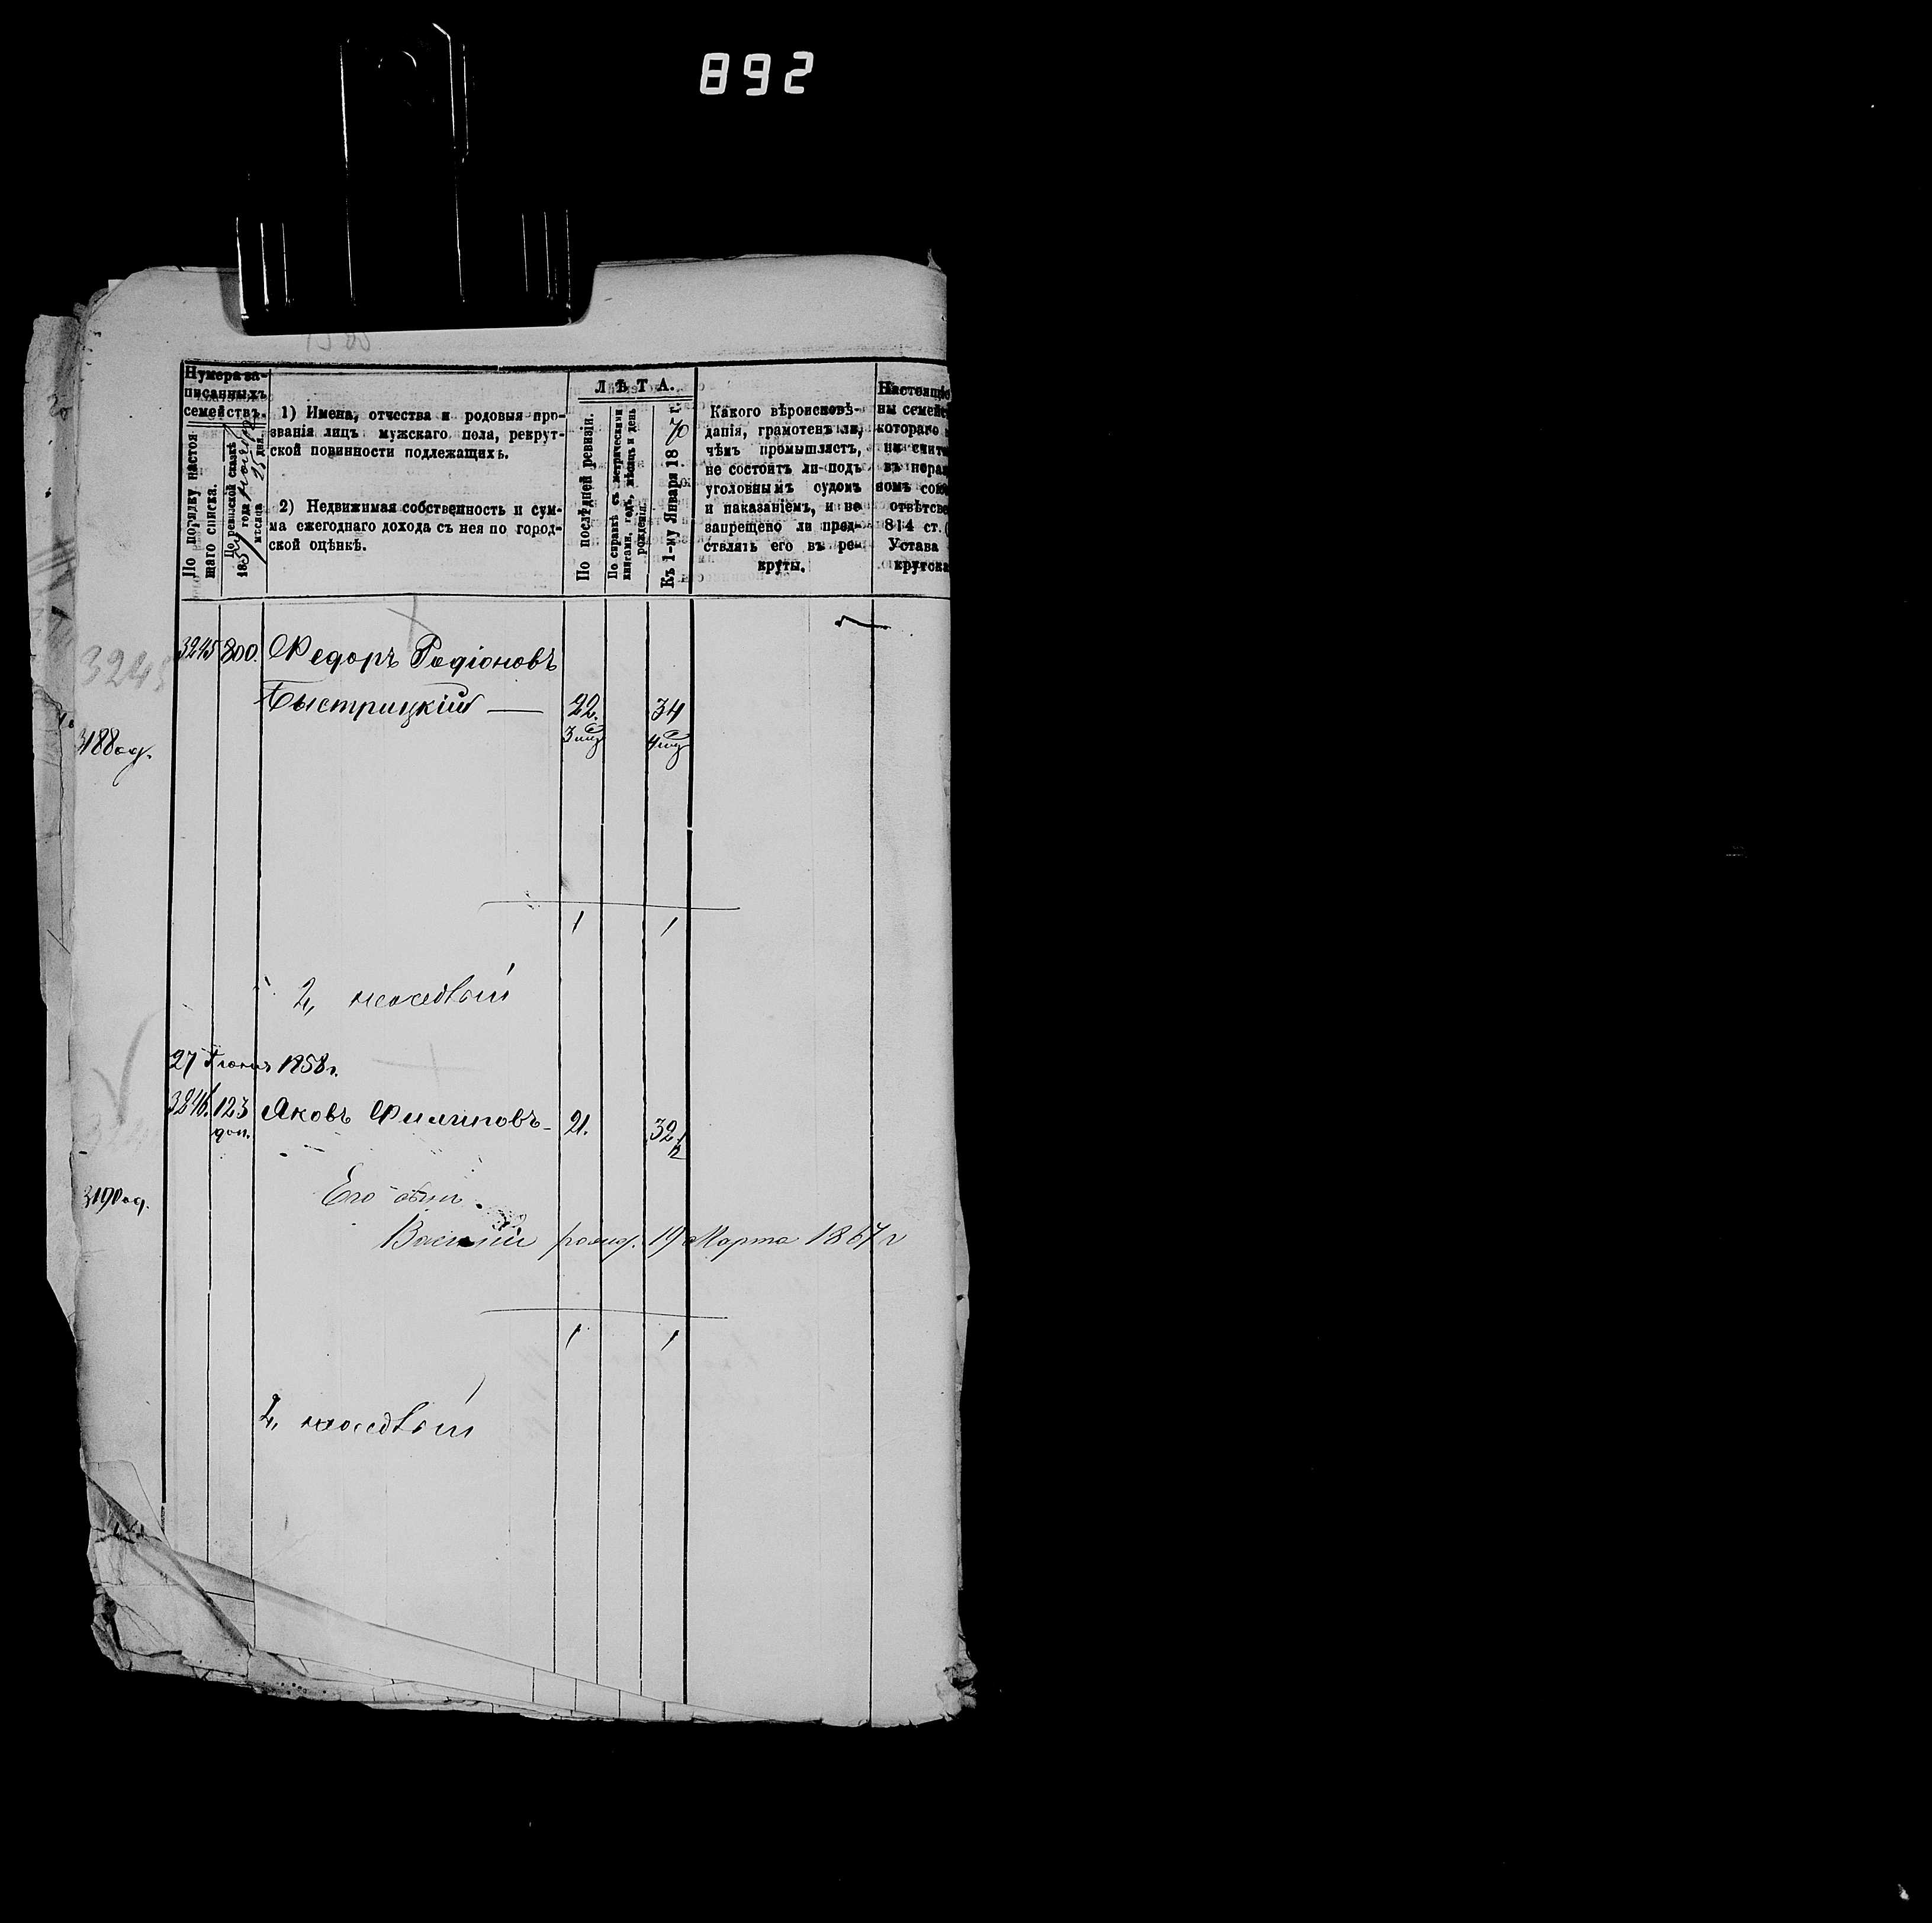 892
Нумера за-
писанныхъ
семействъ.
По порядку настоя
щаго списка.
По ревизской сказкѣ
185 года
мѣсяца 25 дня.
1) Имена, отчества и родовыя про-
званія лицъ мужскаго пола, рекрут-
ской повинности подлежащихъ.
2) Недвижимая собственность и сум-
ма ежегоднаго дохода съ нея по город-
ской оцѣнкѣ.
ЛѢТА.
По послѣдней ревизіи.
По справкѣ съ метрическими
книгами, годъ, мѣсяцъ и день
рожденія.
Къ 1-му Января 1870 г.
Какого вѣроисповѣ-
данія, грамотенъ ли,
чѣмъ промышляетъ,
не состоитъ ли подъ
уголовнымъ судомъ
и наказаніемъ, и не
запрещено ли пред-
ствлять его въ ре-
круты.
Настоящіе
ны семейс
котораго
ни счита
въ нераз
номъ сою
отвѣтсве
814 ст. (
Устава
крутска
3245 3245 800. Федоръ Родіоновъ
Быстрицкій — 22. 34
3188
1 1
2,
27 Іюня 1858 г.
3246. 123 Яковъ Филиповъ 21. 32 1/2
доп.
3190
Его сынъ
Василій рожд. 19 Марта 1867 г
1 1